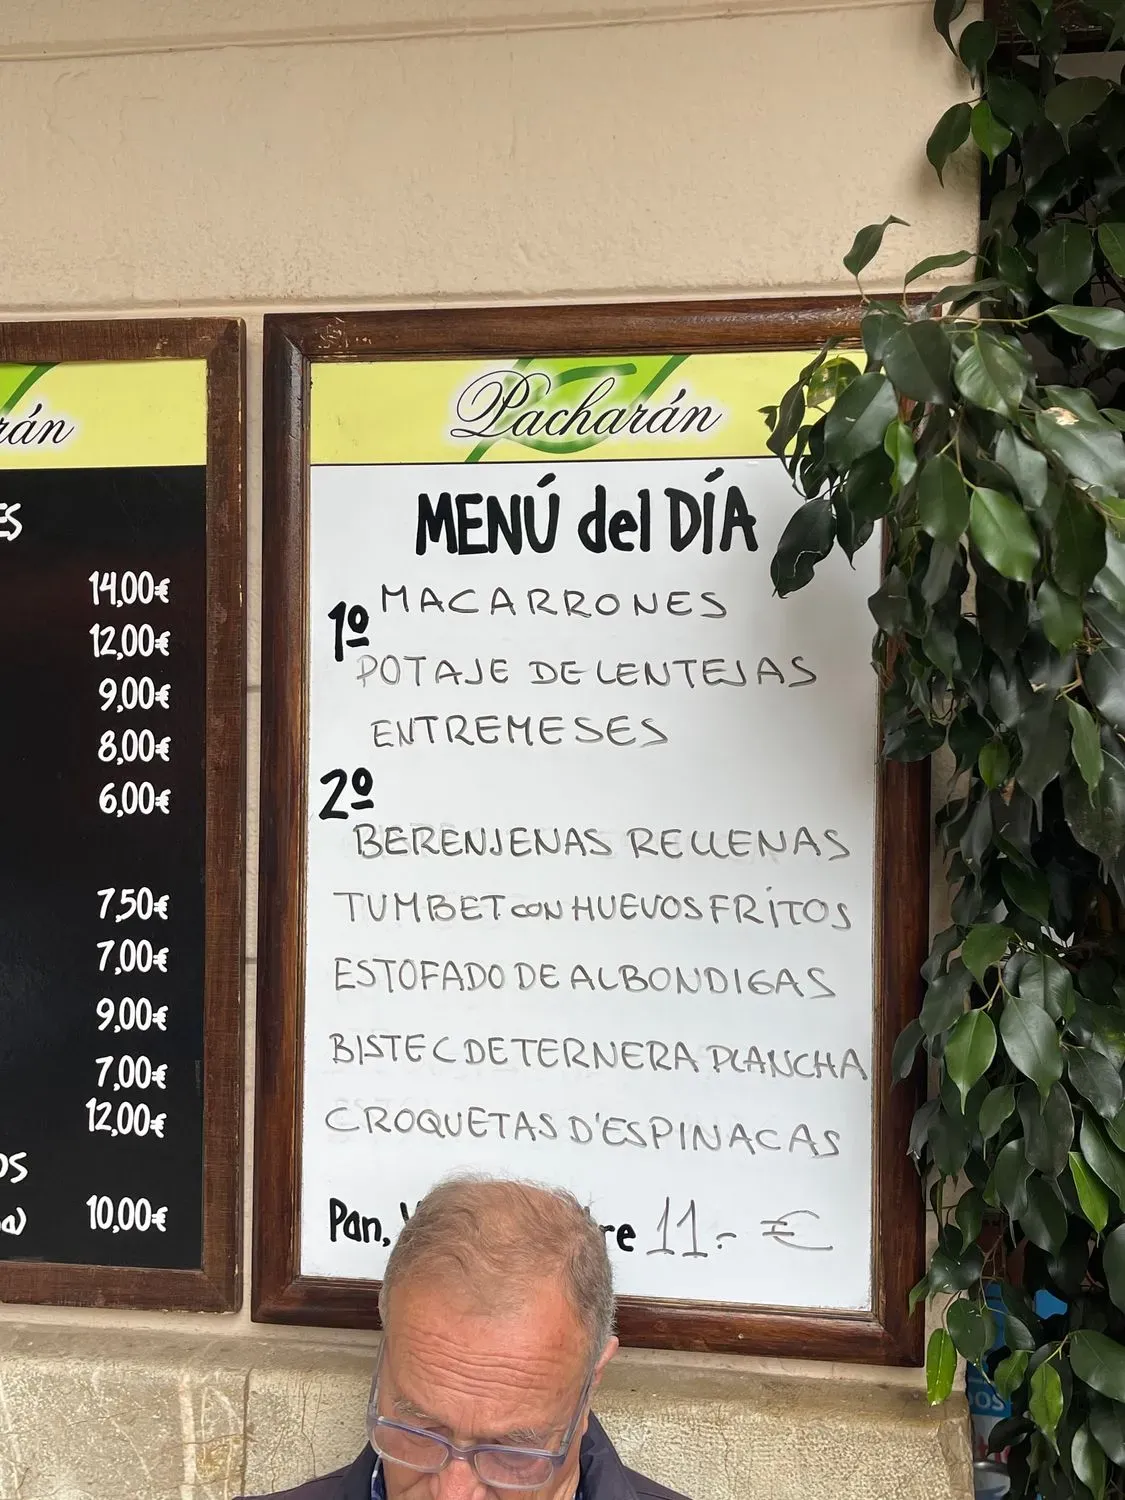 rán
ES
14,00€
12,00€
9,00€
8,00€
6,00€
7,50€
7,00€
9,00€
7,00€
12,00€
OS
a)
10,00€
Pacharán
MENÚ del DÍA
1º
MACARRONES
POTAJE DE LENTEJAS
ENTREMESES
2º
BERENJENAS RELLENAS
TUMBET CON HUEVOS FRITOS
ESTOFADO DE ALBONDIGAS
BISTEC DE TERNERA PLANCHA
CROQUETAS D'ESPINACAS
Pan, re 11.- €
OS